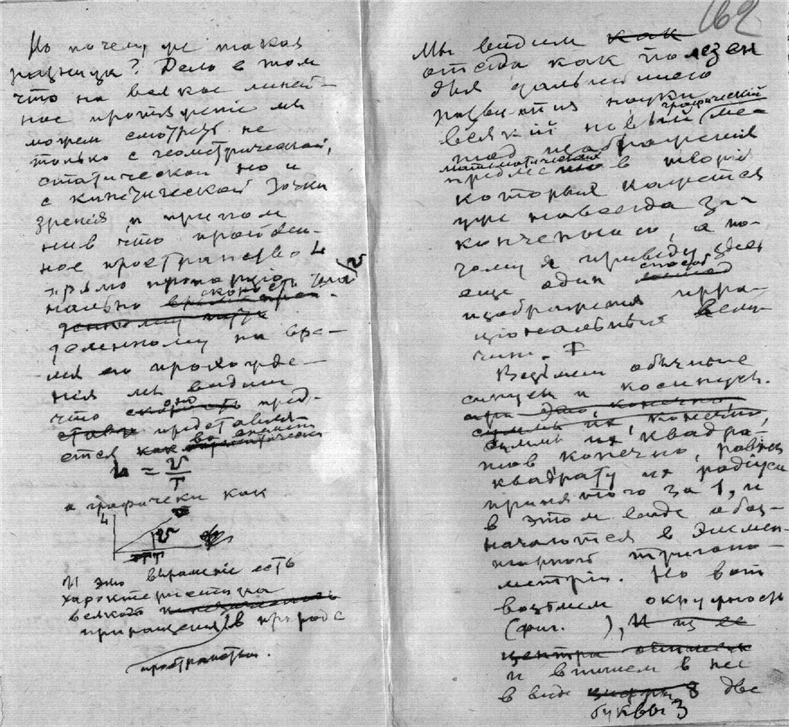 Но почему же такая
разница? Дело в том
что на всякое линей-
ное протяженіе мы
можем смотреть не
только с геометрической,
статической но и
с кинетической точки
зрения, и припом
нив что пройден-
ное пространство L
прямо пропорціо
нально скорость v
деленному на вре-
мя его прохожде-
ния мы видим
что оно пред-
представля-
ется как
L = v/T
а графически как
L v
T T
И это выраженіе есть
характеристика
всякого
приращения в природе
пространства.
162
Мы видим как
отсюда как полезен
для дальнейшего
развития науки
всякий новый графический ме-
тод изображения
математических
предме в теоріи
которыя кажется
уже навсегда за-
конченною, а по-
тому я приведу здесь
еще один способ
изображения ирра-
ціональных вели-
чин.
Возьмем обычные
синусы и косинусы.
это, конечно
сумма их, конечно,
сумма их квадра-
тов конечно, равна
квадрату их радіуса
принятого за 1, и
в этом виде обоз-
начаются в элемен-
тарной тригоно-
метріи. Но вот
возьмем окружность
(фиг. ), и из ее
центра опишем
и впишем в нее
в виде цифры 8 две
буквы З